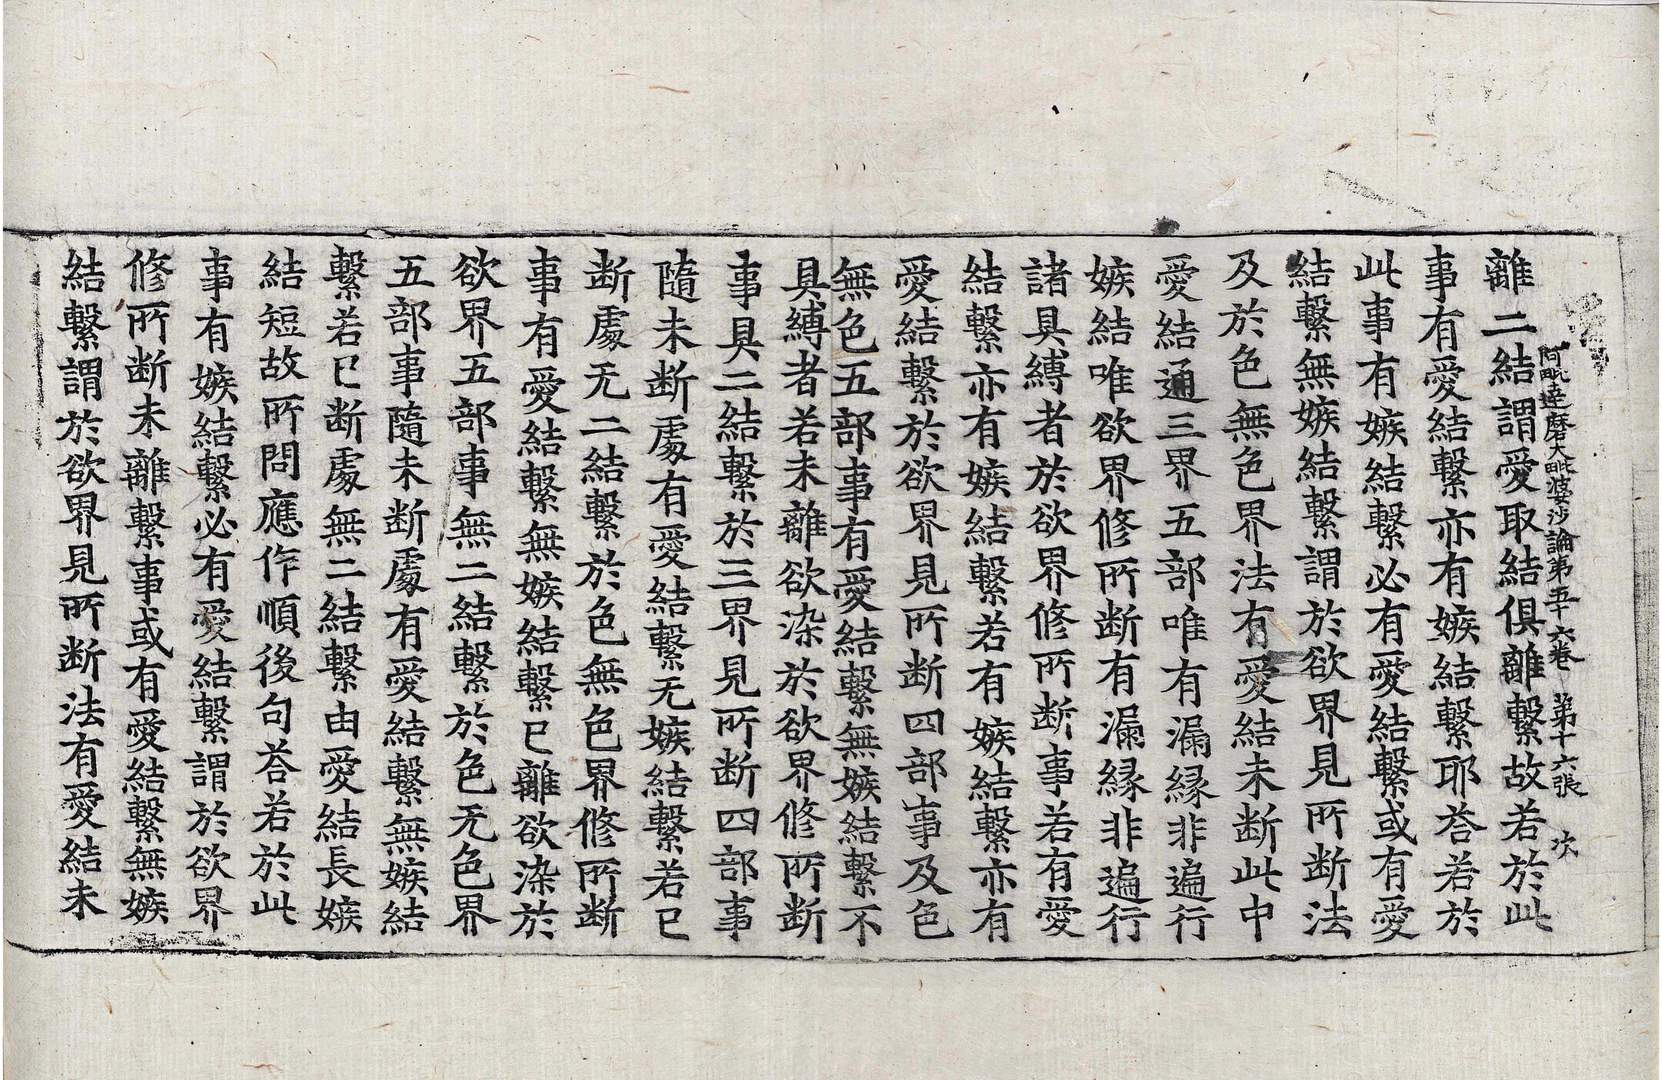 阿毗達磨大毗婆沙論第五十六卷　第十六張　次
離二結謂愛取結俱離繫故若於此
事有愛結繫亦有嫉結繫耶荅若於
此事有嫉結繫必有愛結繫或有愛
結繫無嫉結繫謂於欲界見所断法
及於色無色界法有愛結未断此中
愛結通三界五部唯有漏縁非遍行
嫉結唯欲界修所断有漏縁非遍行
諸具縛者於欲界修所断事若有愛
結繫亦有嫉結繫若有嫉結繫亦有
愛結繫於欲界見所断四部事及色
無色五部事有愛結繫無嫉結繫不
具縛者若未離欲染於欲界修所断
事具二結繫於三界見所断四部事
隨未断處有愛結繫无嫉結繫若已
断處无二結繫於色無色界修所断
事有愛結繫無嫉結繫已離欲染於
欲界五部事無二結繫於色无色界
五部事隨未断處有愛結繫無嫉結
繫若已断處無二結繫由愛結長嫉
結短故所問應作順後句荅若於此
事有嫉結繫必有愛結繫謂於欲界
修所断未離繫事或有愛結繫無嫉
結繫謂於欲界見所断法有愛結未